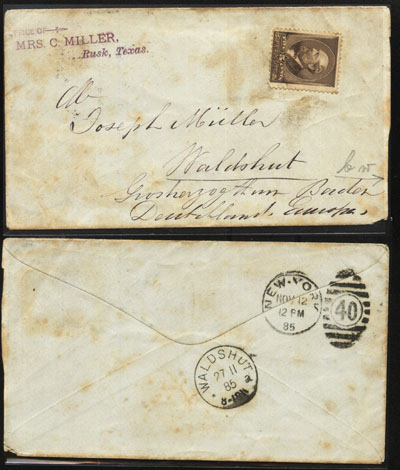 OFFICE OF
MRS. C. MILLER,
Rusk, Texas.
Joseph Müller
Waldshut
Grosherzogthum Baden
Deutchland. Europa.
NEW-YORK
NOV 12
12 PM
85
40
WALDSHUT
27 11
85